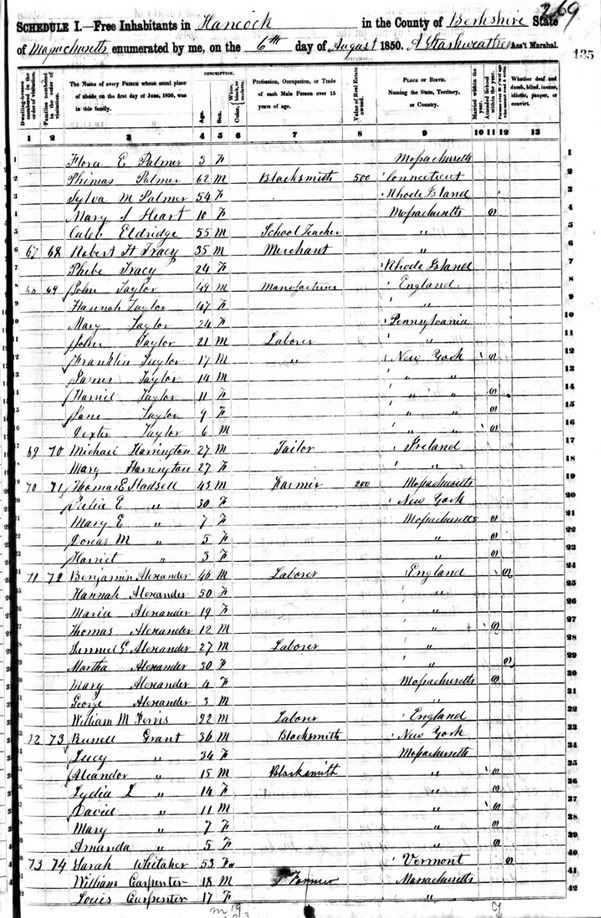 269
SCHEDULE I.—Free Inhabitants in Hancock in the County of Berkshire State
of Massachusetts enumerated by me, on the 6th day of August 1850. A Starkweather Ass't Marshal.
135
Dwelling-houses numbered in the order of visitation. Families numbered in the order of visitation. The Name of every Person whose usual place of abode on the first day of June, 1850, was in this family. DESCRIPTION. Age. Sex. Color Profession, Occupation, or Trade of each Male Person over 15 years of age. Value of Real Estate owned. PLACE OF BIRTH. Naming the State, Territory, or Country. Married within the year. Attended School within the year. Whether deaf and dumb, blind, insane, idiotic, pauper, or convict.
1 2 3 4 5 6 7 8 9 10 11 12 13
1 Flora E Palmer 3 F Massachusetts 1
2 Palmer 62 M Blacksmith 500 Connecticut 2
3 Sylva M Palmer 54 F Rhode Island 3
4 Mary S Heart 10 F Massachusetts 4
5 Caleb Eldridge 55 M School Teacher " 5
6 67 68 Robert H Tracy 35 M Merchant " 6
7 Phebe Tracy 24 F Rhode Island 7
8 68 69 John Taylor 49 M Manufacturer England 8
9 Hannah Taylor 47 F " 9
10 Mary Taylor 24 F Pennsylvania 10
11 John Taylor 21 M Laborer " 11
12 Franklin Taylor 17 M " New York 12
13 James Taylor 14 M " " 13
14 Harriet Taylor 11 F " " 14
15 Jane Taylor 9 F " " 15
16 Dexter Taylor 6 M " " 16
17 69 70 Michael Harrington 27 M Tailor Ireland 17
18 Mary Harrington 27 F " 18
19 70 71 Thomas E Hadsell 43 M Farmer 200 Massachusetts 19
20 Julia E " 30 F New York 20
21 Mary E " 7 F Massachusetts 21
22 Dorcas M " 5 F " 22
23 Harriet " 3 F " 23
24 71 72 Benjamin Alexander 46 M Laborer England 24
25 Hannah Alexander 50 F " 25
26 Maria Alexander 19 F " 26
27 Thomas Alexander 12 M " 27
28 Samuel G Alexander 27 M Laborer " 28
29 Martha Alexander 30 F " 29
30 Mary Alexander 4 F Massachusetts 30
31 George Alexander 3 M " 31
32 William M Ferris 22 M Laborer England 32
33 72 73 Russell Grant 36 M Blacksmith New York 33
34 Lucy " 34 F Massachusetts 34
35 Aleander " 15 M Blacksmith " 35
36 Lydia L " 14 F " 36
37 David " 11 M " 37
38 Mary " 7 F " 38
39 Amanda " 5 F " 39
40 73 74 Sarah Whitaker 53 F Vermont 40
41 William Carpenter 18 M Farmer Massachusetts 41
42 Louis Carpenter 17 F " 42
m 19